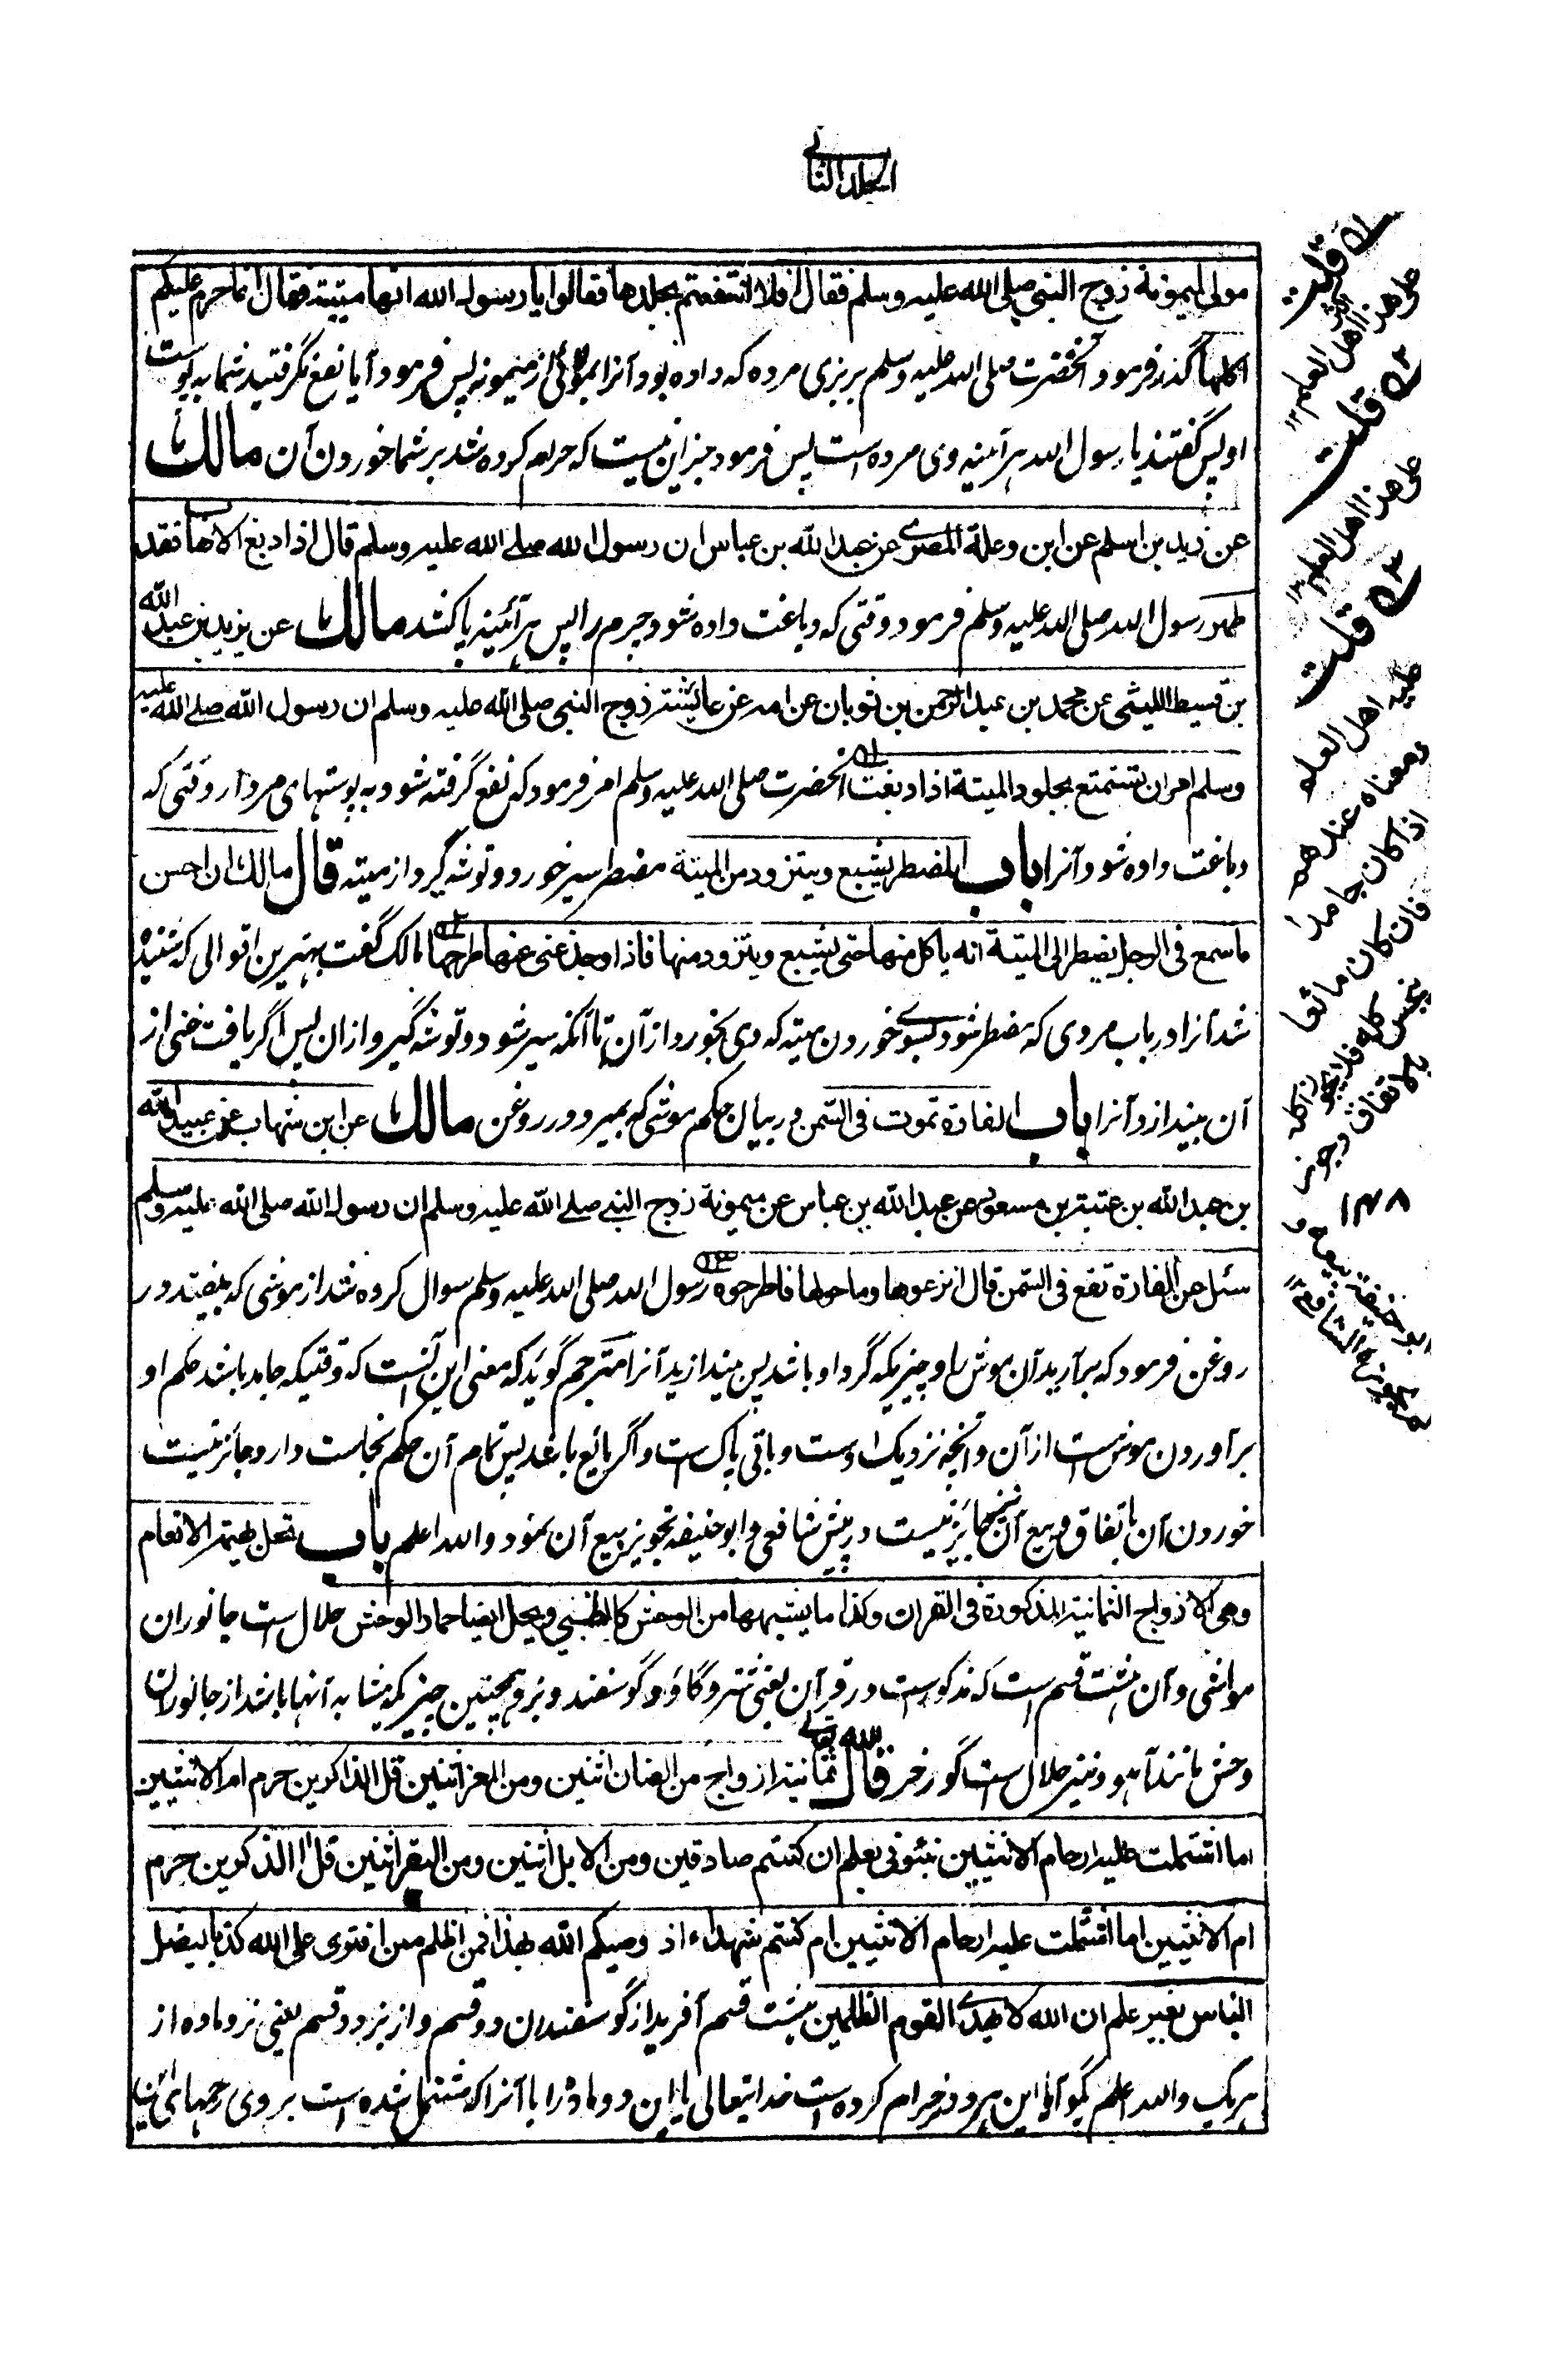 الجلد الثانی
مولى لميمونة زوج النبی صلی الله علیه وسلم فقال افلا انتفعتم بجلدها فقالوا یا رسول الله انها میتة فقال انما حرم علیکم
اکلها گذر فرمود آنحضرت صلی الله علیه وسلم بر بزی مرده که داده بود آنرا بمولائی از میمونه پس فرمود آیا نفع نگرفتید شما به پوست
او پس گفتند یا رسول الله هر آئینه وی مرده است پس فرمود جز این نیست که حرام کرده شد بر شما خوردن آن مالك
عن زید بن اسلم عن ابن وعلة المصری عن عبد الله بن عباس ان رسول الله صلی الله علیه وسلم قال اذا دبغ الاهاب فقد
طهر رسول الله صلی الله علیه وسلم فرمود وقتی که دباغت داده شود چرم را پس هر آئینه پاک شد مالك عن یزید بن عبد الله
بن قسیط اللیثی عن محمد بن عبد الرحمن بن ثوبان عن امه عن عائشة زوج النبی صلی الله علیه وسلم ان رسول الله صلی الله علیه
وسلم امر ان یستمتع بجلود المیتة اذا دبغت آنحضرت صلی الله علیه وسلم امر فرمود که نفع گرفته شود به پوستهای مردار وقتی که
دباغت داده شود آنرا باب المضطر یشبع ویتزود من المیتة مضطر سیر خورد و توشه گیرد از میته قال مالك ان احسن
ما سمع فی الرجل یضطر الی المیتة انه یاکل منها حتی یشبع ویتزود منها فاذا وجد غنی عنها طرحها مالک گفت بهترین اقوالی که شنیده
شد آنرا در باب مردی که مضطر شود بسوی خوردن میته که وی بخورد از آن تا آنکه سیر شود و توشه گیرد ازان پس اگر یافت غنی از
آن بیندازد آنرا باب الفارة تموت فی السمن در بیان حکم موشی که بمیرد در روغن مالك عن ابن شهاب عن عبید الله
بن عبد الله بن عتبة بن مسعود عن عبد الله بن عباس عن میمونة زوج النبی صلی الله علیه وسلم ان رسول الله صلی الله علیه وسلم
سئل عن الفارة تقع فی السمن قال انزعوها وما حولها فاطرحوه رسول الله صلی الله علیه وسلم سوال کرده شد از موشی که بیفتد در
روغن فرمود که بر آرید آن موش را و چیزیکه گرد او باشد پس بیندازید آنرا مترجم گوید که معنی این آنست که وقتیکه جامد باشد حکم او
برآوردن موش ست از آن و آنچه نزدیک اوست و باقی پاک ست و اگر مائع باشد پس تمام آن حکم نجاست دارد و جائز نیست
خوردن آن باتفاق و بیع آن نیز جائز نیست در پیش شافعی و ابو حنیفه تجویز بیع آن نمود والله اعلم باب تحل بهیمة الانعام
وهی الازواج الثمانیة المذکورة فی القران وکذا ما یشبهها من الوحش کالظبی ویحل ایضا حمار الوحش حلال ست جانوران
مواشی و آن هشت قسم است که مذکورست در قرآن یعنی شتر و گاو و گوسفند و بز و همچنین چیزیکه مشابه آنها باشد از جانوران
وحش مانند آهو و نیز حلال ست گورخر قال الله تعالی ثمانیة ازواج من الضان اثنین ومن المعز اثنین قل الذکرین حرم ام الانثیین
اما اشتملت علیه ارحام الانثیین نبئونی بعلم ان کنتم صادقین ومن الابل اثنین ومن البقر اثنین قل االذکرین حرم
ام الانثیین اما اشتملت علیه ارحام الانثیین ام کنتم شهداء اذ وصیکم الله بهذا فمن اظلم ممن افتری علی الله کذبا لیضل
الناس بغیر علم ان الله لا یهدی القوم الظلمین هشت قسم آفرید از گوسفندان دو قسم و از بز دو قسم یعنی نر و ماده از
هریک والله اعلم بگو آیا این هر دو نر حرام کرده است خدایتعالی یا این دو ماده را یا آنرا که مشتمل شده است بر وی رحمهای
۱ قلت
علی هذا اکثر
اهل العلم ۱۲
۲ قلت
علی هذا اهل العلم ۱۲
۳ قلت
علیه اهل العلم
ومعناه عندهم
اذا کان جامدا
فان کان مائعا
نجس کله فلا یجوز اکله
بالاتفاق وجوز
ابو حنیفة بیعه و
لم یجوزه الشافعی ۱۲